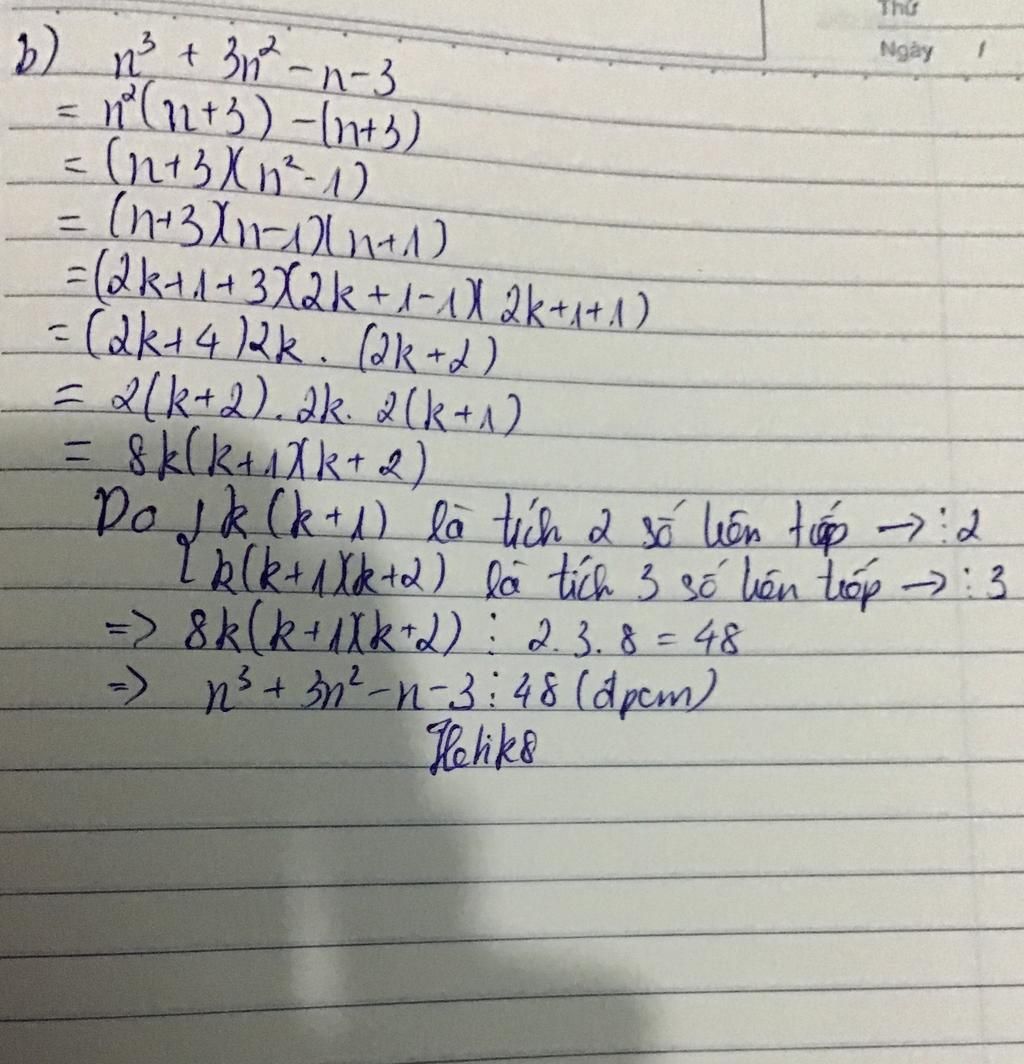 Thứ
Ngày /
b) n³ + 3n² - n - 3
= n²(n+3) - (n+3)
= (n+3)(n² - 1)
= (n+3)(n-1)(n+1)
= (2k+1+3)(2k+1-1)(2k+1+1)
= (2k+4)2k . (2k+2)
= 2(k+2) . 2k . 2(k+1)
= 8k(k+1)(k+2)
Do { k(k+1) là tích 2 số liên tiếp → ⋮ 2
k(k+1)(k+2) là tích 3 số liên tiếp → ⋮ 3
=> 8k(k+1)(k+2) ⋮ 2.3.8 = 48
=> n³ + 3n² - n - 3 ⋮ 48 (đpcm)
Helik8